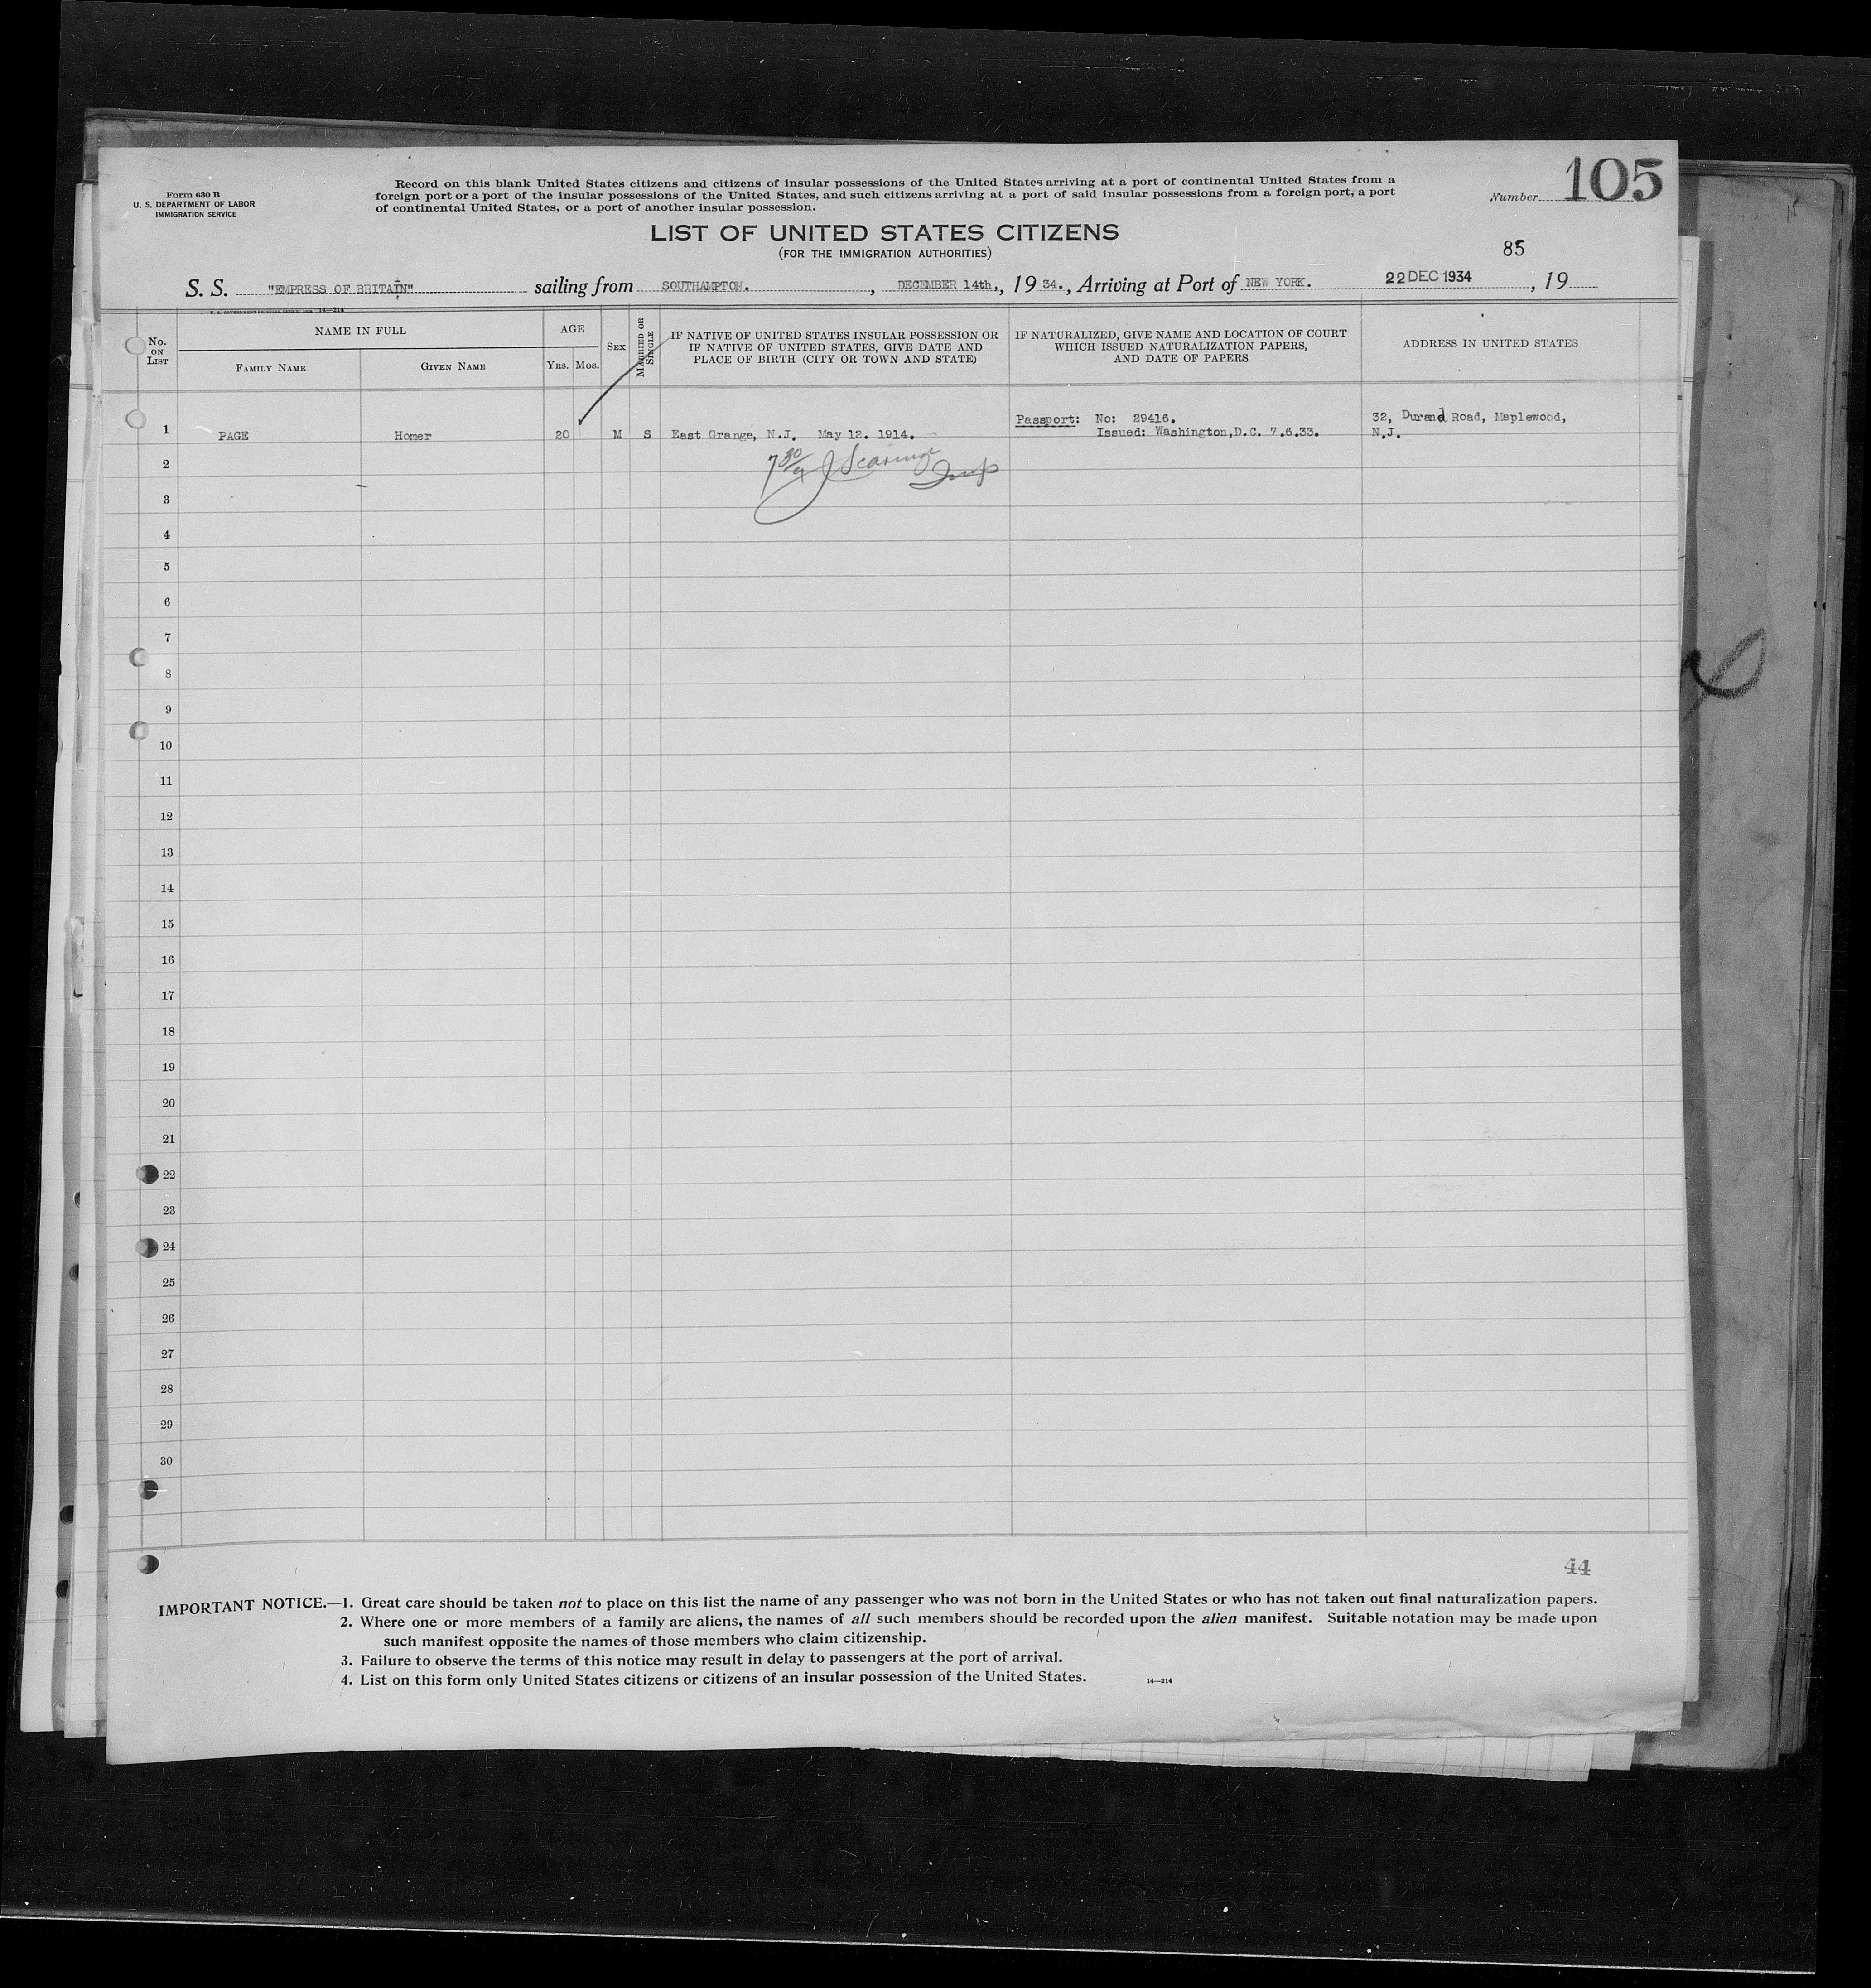 Form 630 B
U. S. DEPARTMENT OF LABOR
IMMIGRATION SERVICE
Record on this blank United States citizens and citizens of insular possessions of the United States arriving at a port of continental United States from a
foreign port or a port of the insular possessions of the United States, and such citizens arriving at a port of said insular possessions from a foreign port, a port
of continental United States, or a port of another insular possession.
Number 105
LIST OF UNITED STATES CITIZENS
(FOR THE IMMIGRATION AUTHORITIES)
85
S. S. "EMPRESS OF BRITAIN" sailing from SOUTHAMPTON. , DECEMBER 14th,, 19 34., Arriving at Port of NEW YORK. 22 DEC 1934 , 19
14—214
No. ON LIST
NAME IN FULL
FAMILY NAME
GIVEN NAME
AGE
YRS. MOS.
SEX
MARRIED OR SINGLE
IF NATIVE OF UNITED STATES INSULAR POSSESSION OR
IF NATIVE OF UNITED STATES, GIVE DATE AND
PLACE OF BIRTH (CITY OR TOWN AND STATE)
IF NATURALIZED, GIVE NAME AND LOCATION OF COURT
WHICH ISSUED NATURALIZATION PAPERS,
AND DATE OF PAPERS
ADDRESS IN UNITED STATES
Passport: No: 29416. 32, Durand Road, Maplewood,
1 PAGE Homer 20 M S East Orange, N.J. May 12. 1914. Issued: Washington,D.C. 7.6.33. N.J.
2
3
4
5
6
7
8
9
10
11
12
13
14
15
16
17
18
19
20
21
22
23
24
25
26
27
28
29
30
44
IMPORTANT NOTICE.—1. Great care should be taken not to place on this list the name of any passenger who was not born in the United States or who has not taken out final naturalization papers.
2. Where one or more members of a family are aliens, the names of all such members should be recorded upon the alien manifest. Suitable notation may be made upon
such manifest opposite the names of those members who claim citizenship.
3. Failure to observe the terms of this notice may result in delay to passengers at the port of arrival.
4. List on this form only United States citizens or citizens of an insular possession of the United States.
14—214